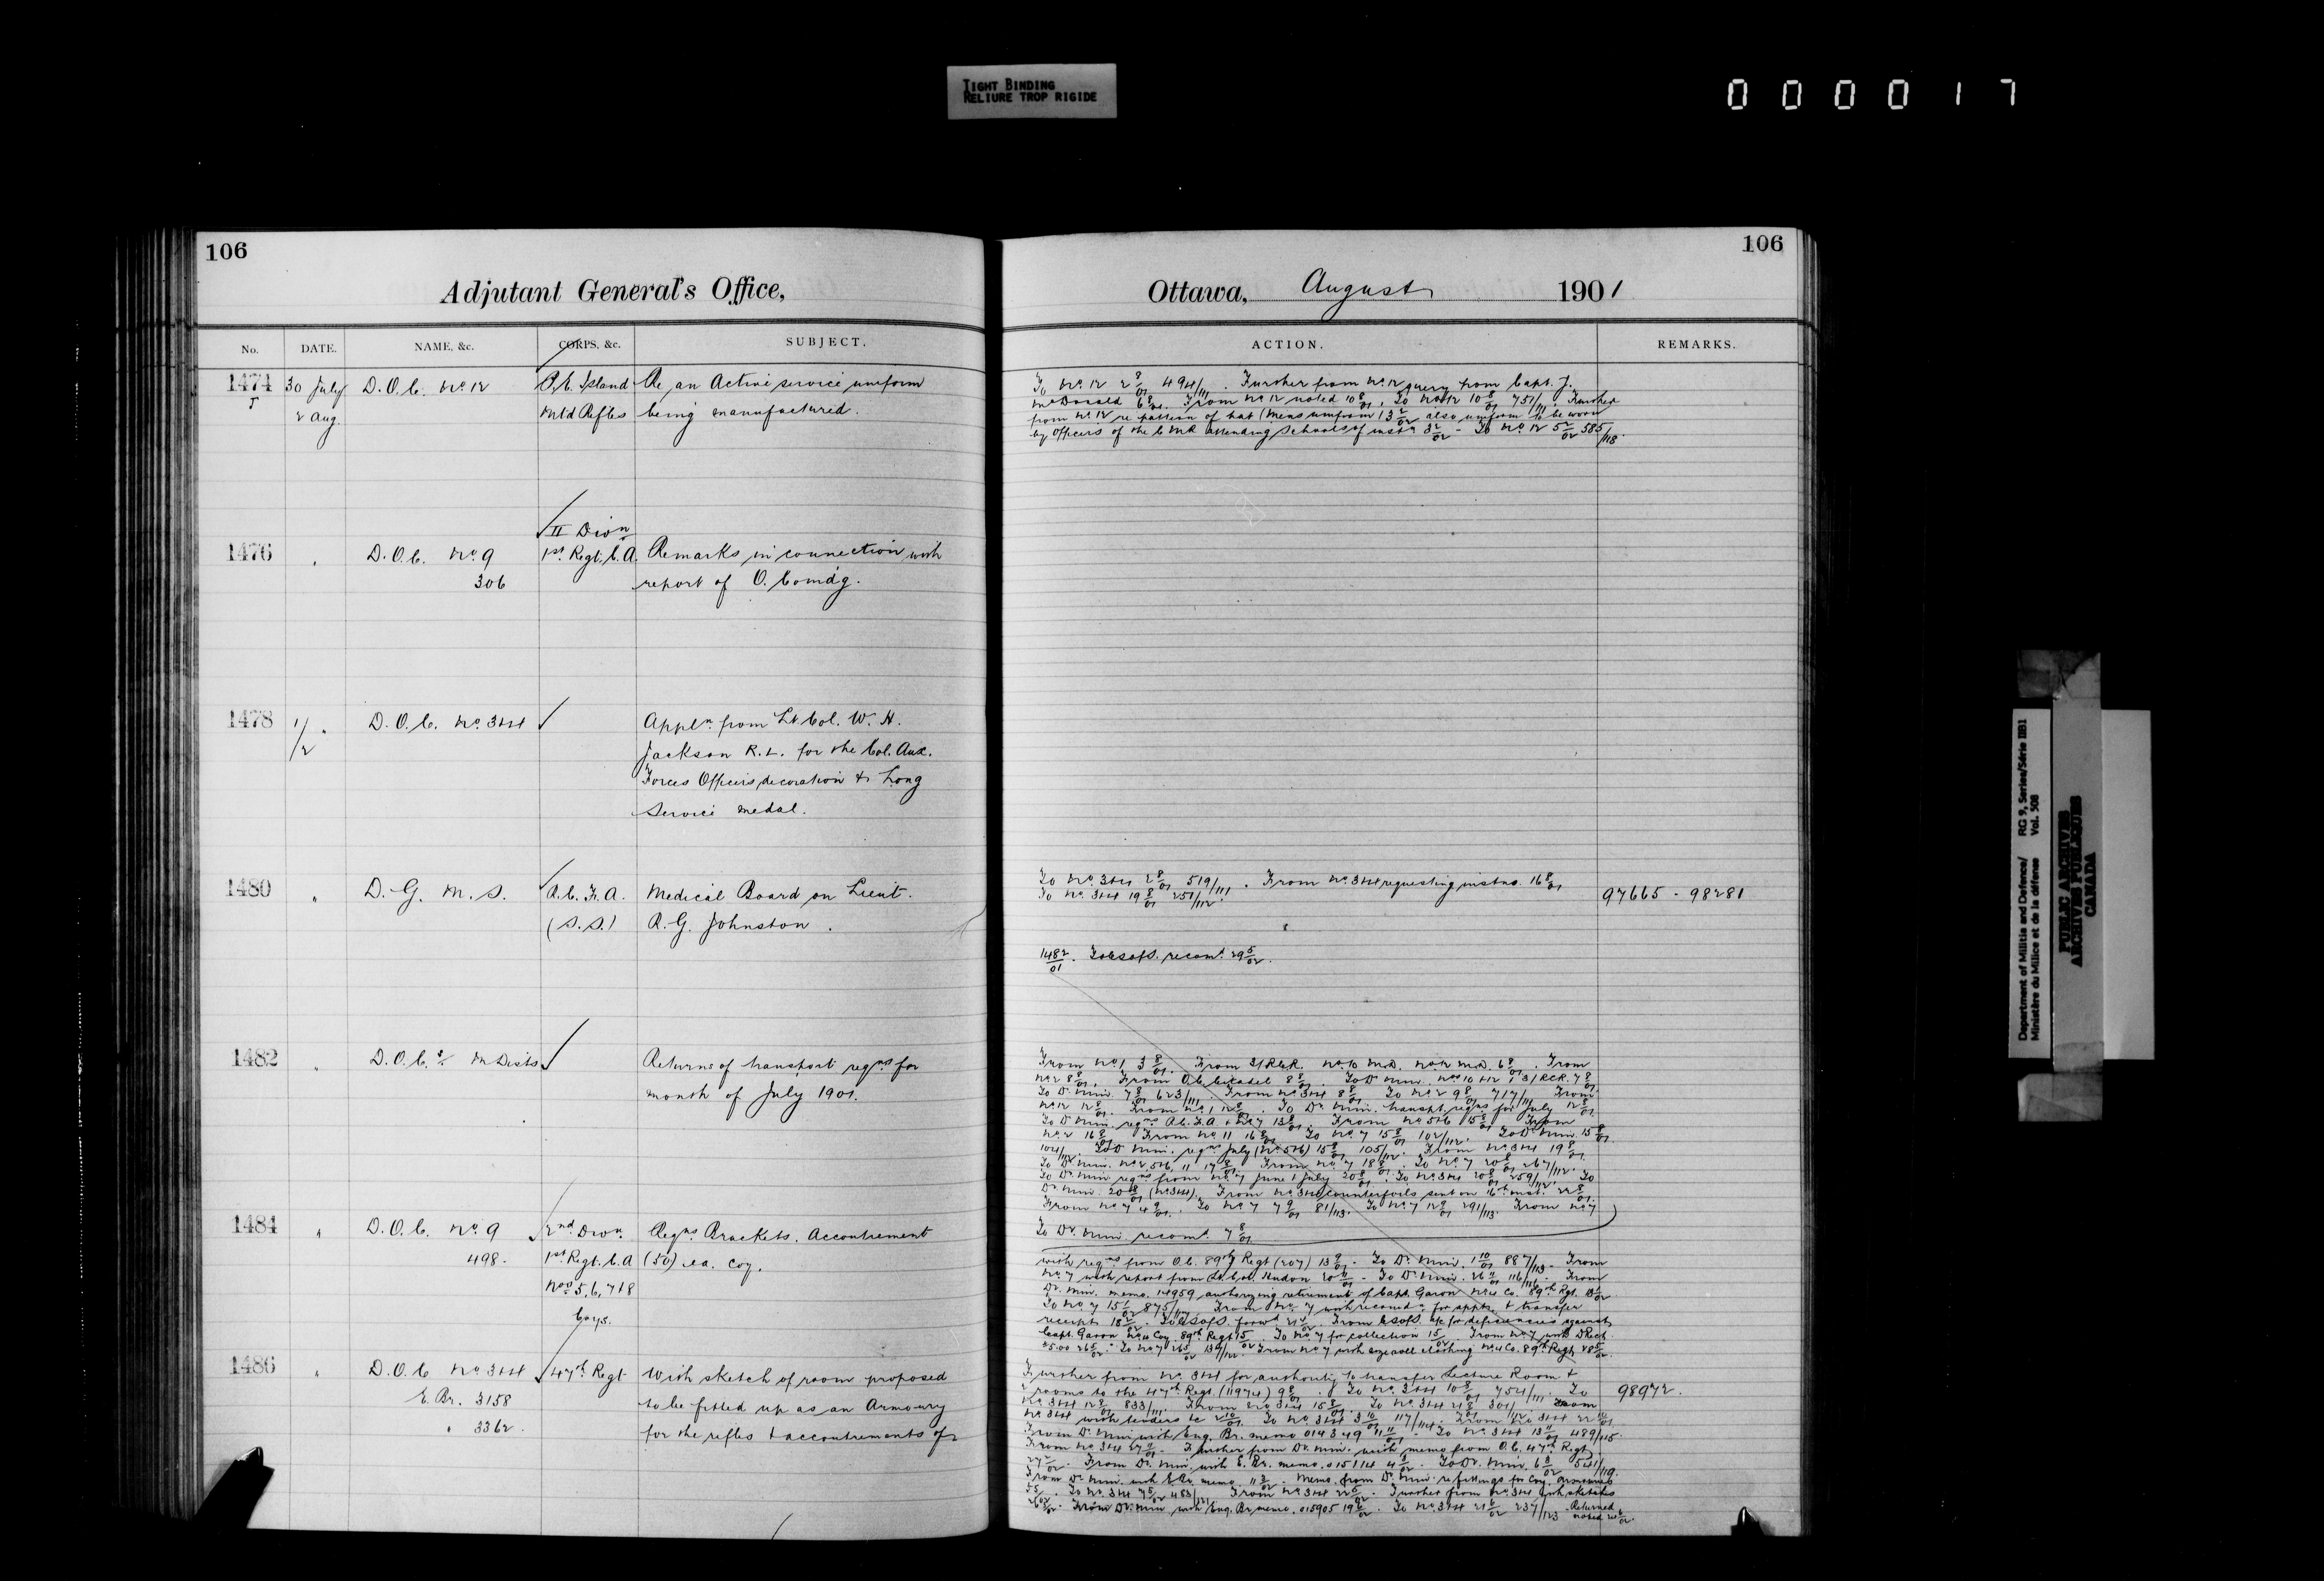 TIGHT BINDING
RELIURE TROP RIGIDE
000017
106
Adjutant General's Office,
No. DATE. NAME, &c. CORPS, &c. SUBJECT.
1474 30 July D.O.C. No. 12 P.E. Island Re an Active service uniform
2 Aug. Mtd Rifles being manufactured.
II Divn
1476 " D.O.C. No 9 1st Regt. C.A. Remarks in connection with
306 report of O. Comdg.
1478 1/2 " D.O.C. No. 3&4 Appln. from Lt. Col. W. H.
Jackson R.L. for the Col. Aux.
Forces Officers decoration & Long
Service medal.
1480 " D.G.M.S. R.C.F.A. Medical Board on Lieut.
(S.S.) R.G. Johnston.
1482 " D.O.C.s M Dists Returns of transport reqns for
month of July 1901.
1484 " D.O.C. No 9 2nd Divn. Reqns Brackets. Accoutrement
498. 1st Regt. C.A (50) ea. Coy.
Nos 5, 6, 7 & 8
Coys.
1486 " D.O.C No 3&4 47th Regt With sketch of room proposed
E. Br. 3158 to be fitted up as an Armoury
" 3362. for the rifles & accoutrements of
106
Ottawa, August 1901
ACTION. REMARKS.
To No. 12 2/8/01 494/111. Further from No. 12 query from Capt. J.
McDonald 6/8/01. From No 12 noted 10/8/01. To No 12 10/8/01 751/111. Further
from No. 12 re pattern of hat (mens uniform) 3/2/02 also uniform to be worn
by Officers of the C M R attending Schools of instn 3/2/02 - To No. 12 5/2/02 585/118.
To No. 3&4 2/8/01 519/111. From No. 3&4 requesting instns. 16/8/01
To No. 3&4 19/8/01 251/112. 97665 - 98281
1482/01. To C of S. recomd. 29/5/02.
From No 1, 3/8/01. From 3/RCR. No 10 M.D. No 12 M.D. 6/8/01. From
No 2 8/8/01. From O.C. Citadel 8/8/01. To Dr. Min. Nos 10 & 12, 3/RCR. 7/8/01.
To Dr. Min. 7/8/01 623/111. From No. 3&4 8/8/01. To No. 2 9/8/01 717/111 From
No. 12 12/8/01. From No. 1 12/8/01. To Dr. Min. transpt. reqns for July 12/8/01.
To Dr. Min. reqns R.C.F.A. & No 7 13/8/01. From No 5&6 15/8/01. From
No. 2 16/8/01 From No 11 16/8/01 To No. 7 15/8/01 102/112. To Dr. Min. 15/8/01.
104/112. To Dr. Min. reqns July (No 5&6) 15/8/01 105/112. From No 3&4 19/8/01.
To Dr. Min. No 2, 5&6, 11 17/8/01 From No. 7 18/8/01. To No. 7 20/8/01 267/112.
To Dr. Min. reqns from No. 7 June & July 20/8/01. To No 3&4 20/8/01 259/112. To
Dr. Min. 20/8/01 (No 3&4). From No 3&4 counterfoils sent on 16th inst. 22/8/01.
From No. 7 4/9/01. To No. 7 7/9/01 81/113. To No. 7 12/9/01 291/113. From No 7
To Dr. Min. recomd. 7/8/01
with reqns from O.C. 89th Regt (207) 13/9/01. To Dr. Min. 1/10/01 887/113. From
No. 7 with report from Lt. Col. Hudon 20/11/01 - To Dr. Min. 26/11/01 116/116 - From
Dr. Min. memo. 14959 authorizing retirement of Capt. Garon No 4 Co. 89th Rgt.
To No 7 15/1/02 875/117. From No. 7 with recomdn for apptn. & transfer
receipt 18/2/02. To C of S. forwd From C of S. a/c for deficiencies against
Capt. Garon No 4 Coy. 89th Regt To No. 7 for collection From No 7 with D Rect
25.00 26/5/02. To No 7 26/5/02 From No 7 with size roll clothing No 4 Co. 89th Regt 28/5/02.
Further from No. 3&4 for authority to transfer Lecture Room &
2 rooms to the 47th Regt. (11974) 9/8/01. To No. 3&4 10/8/01 754/111. To 98972.
No 3&4 12/8/01 833/111. From No 3&4 15/8/01. To No. 3&4 21/8/01 301/112. From
No. 3&4 with tenders &c 2/10/01. To No. 3&4 3/10/01 117/114. From No 3&4
From Dr. Min with Eng. Br. memo 014349 11/11/01. To No. 3&4 13/11/01 489/115.
From No. 3&4 27/11/01. Further from Dr. Min. with memo from O.C. 47th Regt.
From Dr. Min. with E. Br. memo. 015114 To Dr. Min. 541/119.
From Dr. Min. with E Br. memo Memo. from Dr. Min re fittings for Coy. armouries
To No. 3&4 From No 3&4 Further from No 3&4 with sketches
From Dr. Min with Eng. Br memo. 015905 19/6/02. To No. 3&4 21/6/02 237/123 Returned
noted
Department of Militia and Defence/ RG 9, Series/Série IIB1
Ministère du Milice et de la défense Vol. 508
PUBLIC ARCHIVES
ARCHIVES PUBLIQUES
CANADA